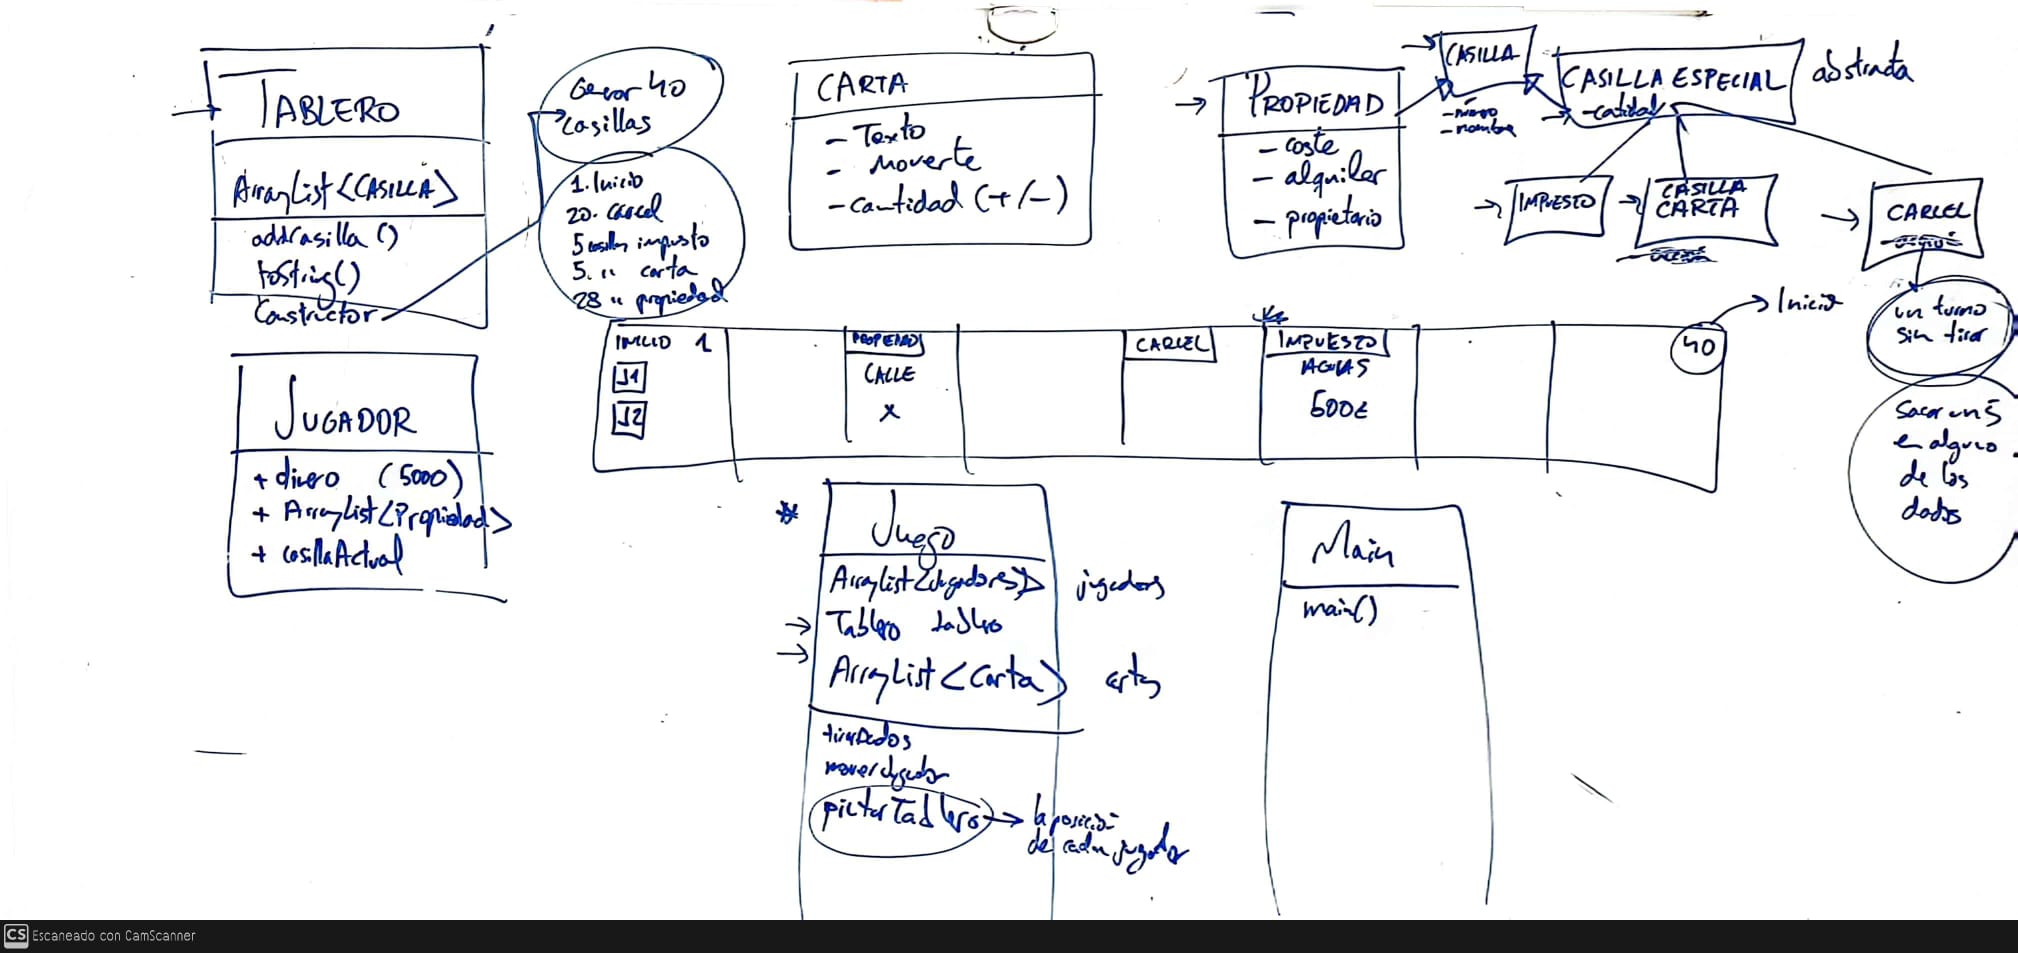 TABLERO
ArrayList<CASILLA>
addCasilla()
toString()
Constructor
Generar 40
casillas
1. Inicio
20. carcel
5 casillas impuesto
5. " carta
28 " propiedad
CARTA
- Texto
- Moverte
- cantidad (+/-)
PROPIEDAD
- coste
- alquiler
- propietario
CASILLA
- número
- nombre
CASILLA ESPECIAL
- cantidad
abstracta
IMPUESTO
CASILLA
CARTA
CARCEL
un turno
sin tirar
Sacar un 5
en alguno
de los
dados
JUGADOR
+ dinero (5000)
+ ArrayList<Propiedad>
+ casillaActual
INICIO 1
J1
J2
PROPIEDAD
CALLE
X
CARCEL
IMPUESTO
AGUAS
500€
40
Inicio
*
Juego
ArrayList<Jugadores> jugadores
Tablero tablero
ArrayList<Carta> cartas
tirarDados
moverJugador
pintarTablero
la posición
de cada jugador
Main
main()
CS Escaneado con CamScanner